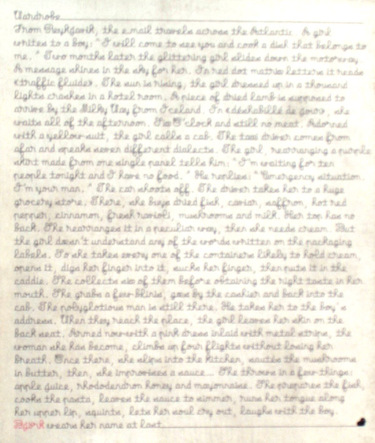 Wardrobe
From Reykjavik, the email travels across the Atlantic. A girl
writes to a boy: "I will come to see you and cook a dish that belongs to
me." Two months later the glittering girl slides down the motorway.
A message shines in the sky for her. In red dot matrix letters it reads
«traffic fluide». The sun is rising, the girl dressed up in a thousand
lights crashes in a hotel room. A piece of dried lamb is supposed to
arrive by the Milky Way from Iceland. In «déshabillé de gaze», she
waits all of the afternoon. Six O'clock and still no meat. Adorned
with a yellow suit, the girl calls a cab. The taxi driver comes from
afar and speaks seven different dialects. The girl, rearranging a purple
skirt made from one single panel tells him: "I'm waiting for ten
people tonight and I have no food." He replies: "Emergency situation.
I'm your man." The car shoots off. The driver takes her to a huge
grocery store. There, she buys dried fish, caviar, saffron, hot red
pepper, cinnamon, fresh ravioli, mushrooms and milk. Her top has no
back. She rearranges it in a peculiar way, then she needs cream. But
the girl doesn't understand any of the words written on the packaging
labels. So she takes every one of the containers likely to hold cream,
opens it, digs her finger into it, sucks her finger, then puts it in the
caddie. She collects six of them before obtaining the right taste in her
mouth. She grabs a few blinis, goes by the cashier and back into the
cab. The polyglottous man is still there. He takes her to the boy's
address. When they reach the place, the girl leaves her skin on the
back seat. Armed now with a pink dress inlaid with metal strips, the
woman she has become, climbs up four flights without losing her
breath. Once there, she slips into the kitchen, sautés the mushrooms
in butter, then, she improvises a sauce... She throws in a few things:
apple juice, rhododendron honey and mayonnaise. She prepares the fish,
cooks the pasta, leaves the sauce to simmer, runs her tongue along
her upper lip, squints, lets her soul cry out, laughs with the boy.
wears her name at last